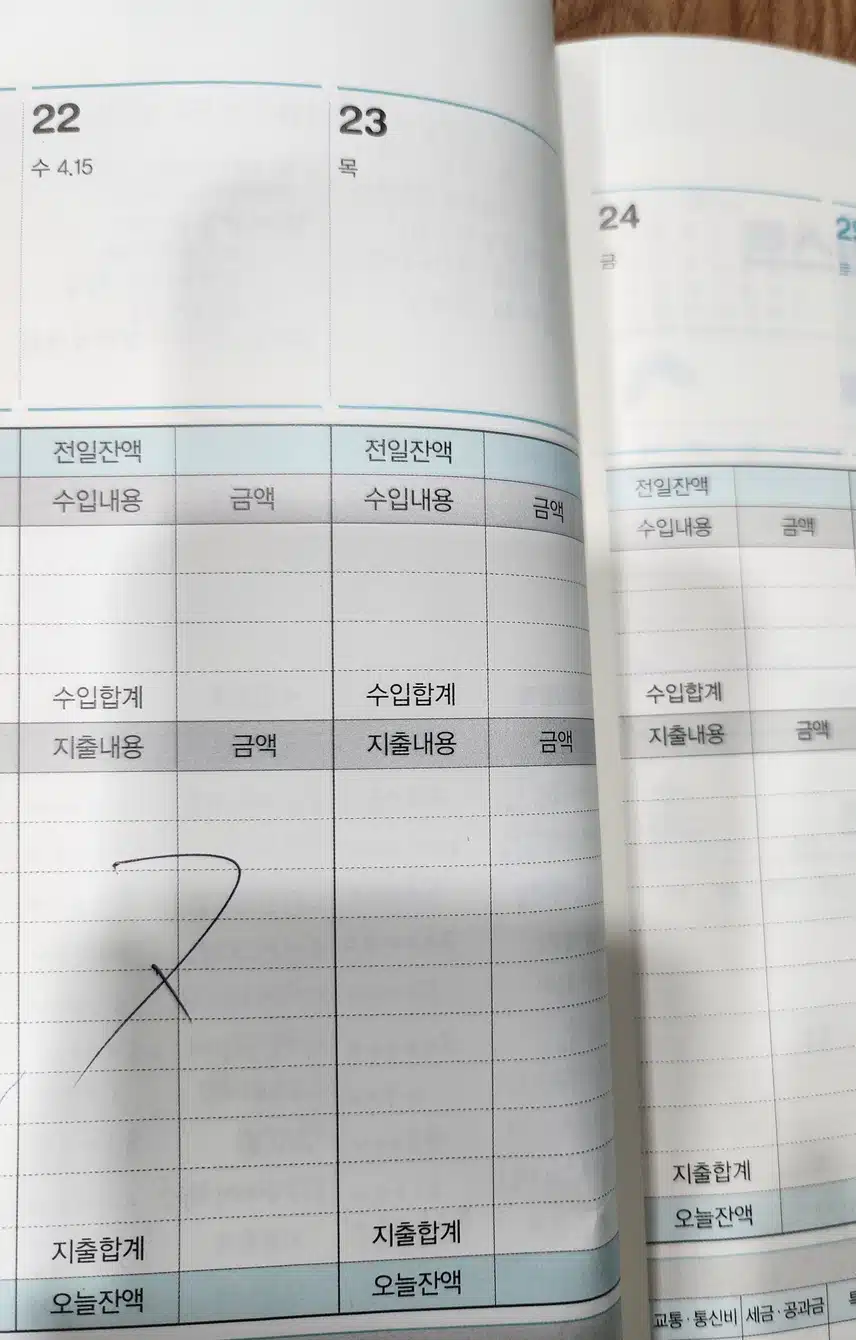 22
수 4.15
전일잔액
수입내용 금액
수입합계
지출내용 금액
ス
지출합계
오늘잔액
23
목
전일잔액
수입내용 금액
수입합계
지출내용 금액
지출합계
오늘잔액
24
금
전일잔액
수입내용 금액
수입합계
지출내용 금액
지출합계
오늘잔액
교통·통신비 세금·공과금
25